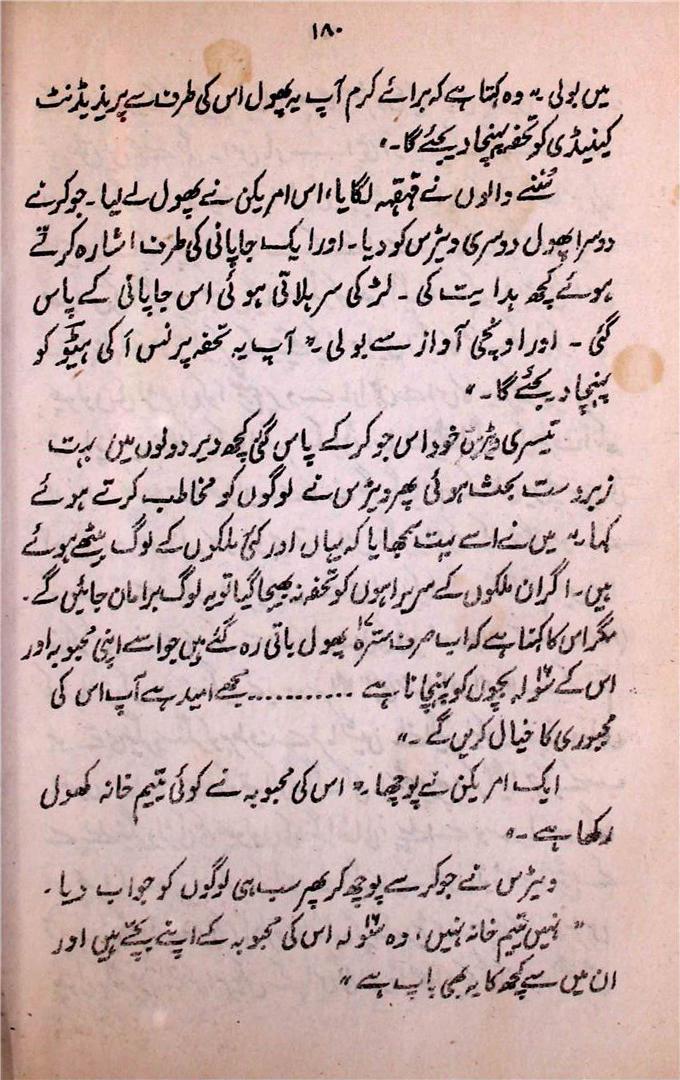 ۱۸۰
میں بولی۔ "وہ کہتا ہے کہ برائے کرم آپ یہ پھول اس کی طرف سے پریذیڈنٹ
کینیڈی کو تحفہ پہنچا دیجئے گا۔"
سُننے والوں نے قہقہہ لگایا، اس امریکن نے پھول لے لیا۔ جوکر نے
دوسرا پھول دوسری ویٹرس کو دیا۔ اور ایک جاپانی کی طرف اشارہ کرتے
ہوئے کچھ ہدایت کی۔ لڑکی سر ہلاتی ہوئی اس جاپانی کے پاس
گئی۔ اور اونچی آواز سے بولی۔ "آپ یہ تحفہ پرنس آکی ہیٹو کو
پہنچا دیجئے گا۔"
تیسری ویٹرس خود اس جوکر کے پاس گئی کچھ دیر دونوں میں بہت
زبردست بحث ہوئی پھر ویٹرس نے لوگوں کو مخاطب کرتے ہوئے
کہا۔ "میں نے اسے بہت سمجھایا کہ یہاں اور کئی ملکوں کے لوگ بیٹھے ہوئے
ہیں۔ اگر ان ملکوں کے سربراہوں کو تحفہ نہ بھیجا گیا تو یہ لوگ برا مان جائیں گے۔
مگر اس کا کہنا ہے کہ اب صرف سترہ ۱۷ پھول باقی رہ گئے ہیں جو اسے اپنی محبوبہ اور
اس کے سولہ ۱۶ بچوں کو پہنچانا ہے ........... مجھے امید ہے آپ اس کی
مجبوری کا خیال کریں گے۔"
ایک امریکن نے پوچھا۔ "اس کی محبوبہ نے کوئی یتیم خانہ کھول
رکھا ہے۔"
ویٹرس نے جوکر سے پوچھ کر پھر سب ہی لوگوں کو جواب دیا۔
"نہیں یتیم خانہ نہیں، وہ سولہ ۱۶ اس کی محبوبہ کے اپنے بچے ہیں اور
ان میں سے کچھ کا یہ بھی باپ ہے"